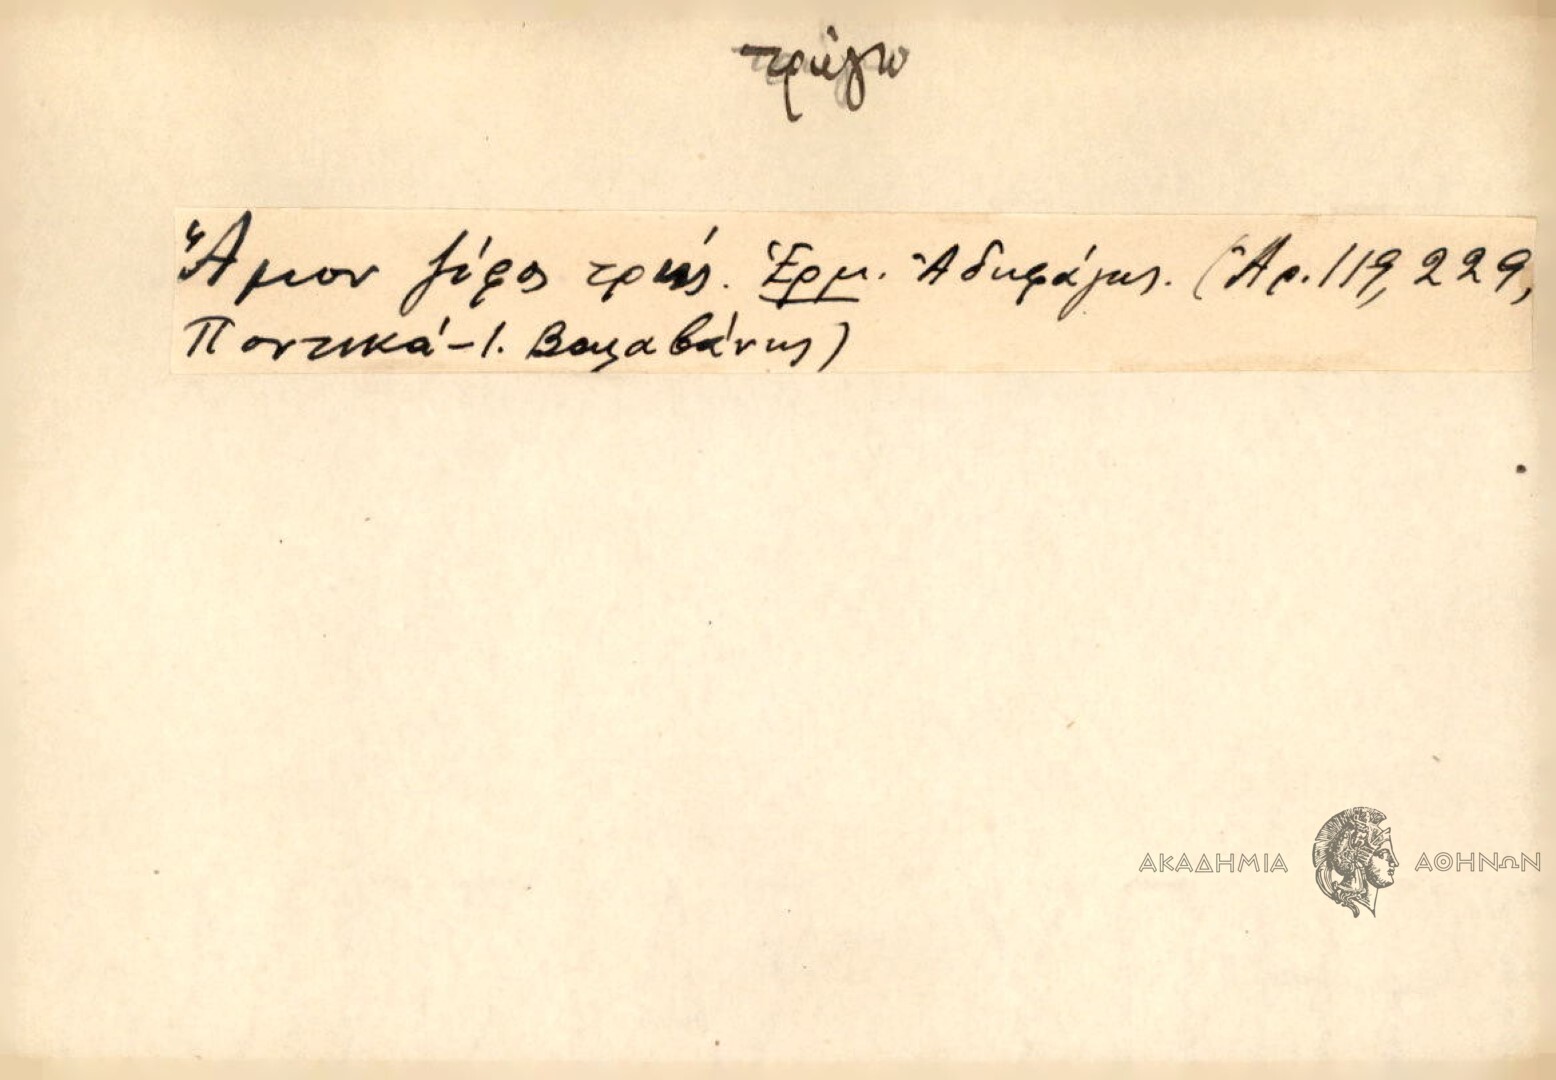 τρώγω
Ἄμον γέρος τρώς. Ἑρμ. Ἀδηφάγος. (Ἀρ. 119, 229,
Ποντικά - Ι. Βαλαβάνης)
ΑΚΑΔΗΜΙΑ ΑΘΗΝΩΝ